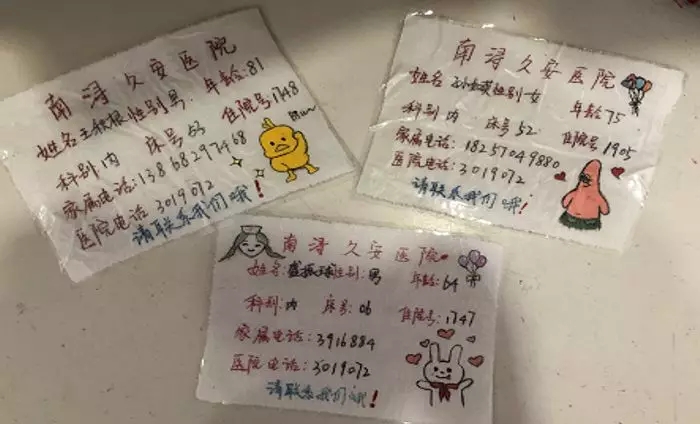 南浔久安医院
姓名 王 根 性别 男 年龄:81
科别 内 床号 53 住院号 1748
家属电话:13868297468
医院电话 3019072
请联系我们哦!
南浔久安医院
姓名 性别 女 年龄 75
科别 内 床号 52 住院号 1905
家属电话:18257049880
医院电话:3019072
请联系我们哦!
南浔久安医院
姓名: 性别:男 年龄:64
科别:内 床号:06 住院号:1747
家属电话:3916884
医院电话:3019072
请联系我们哦!